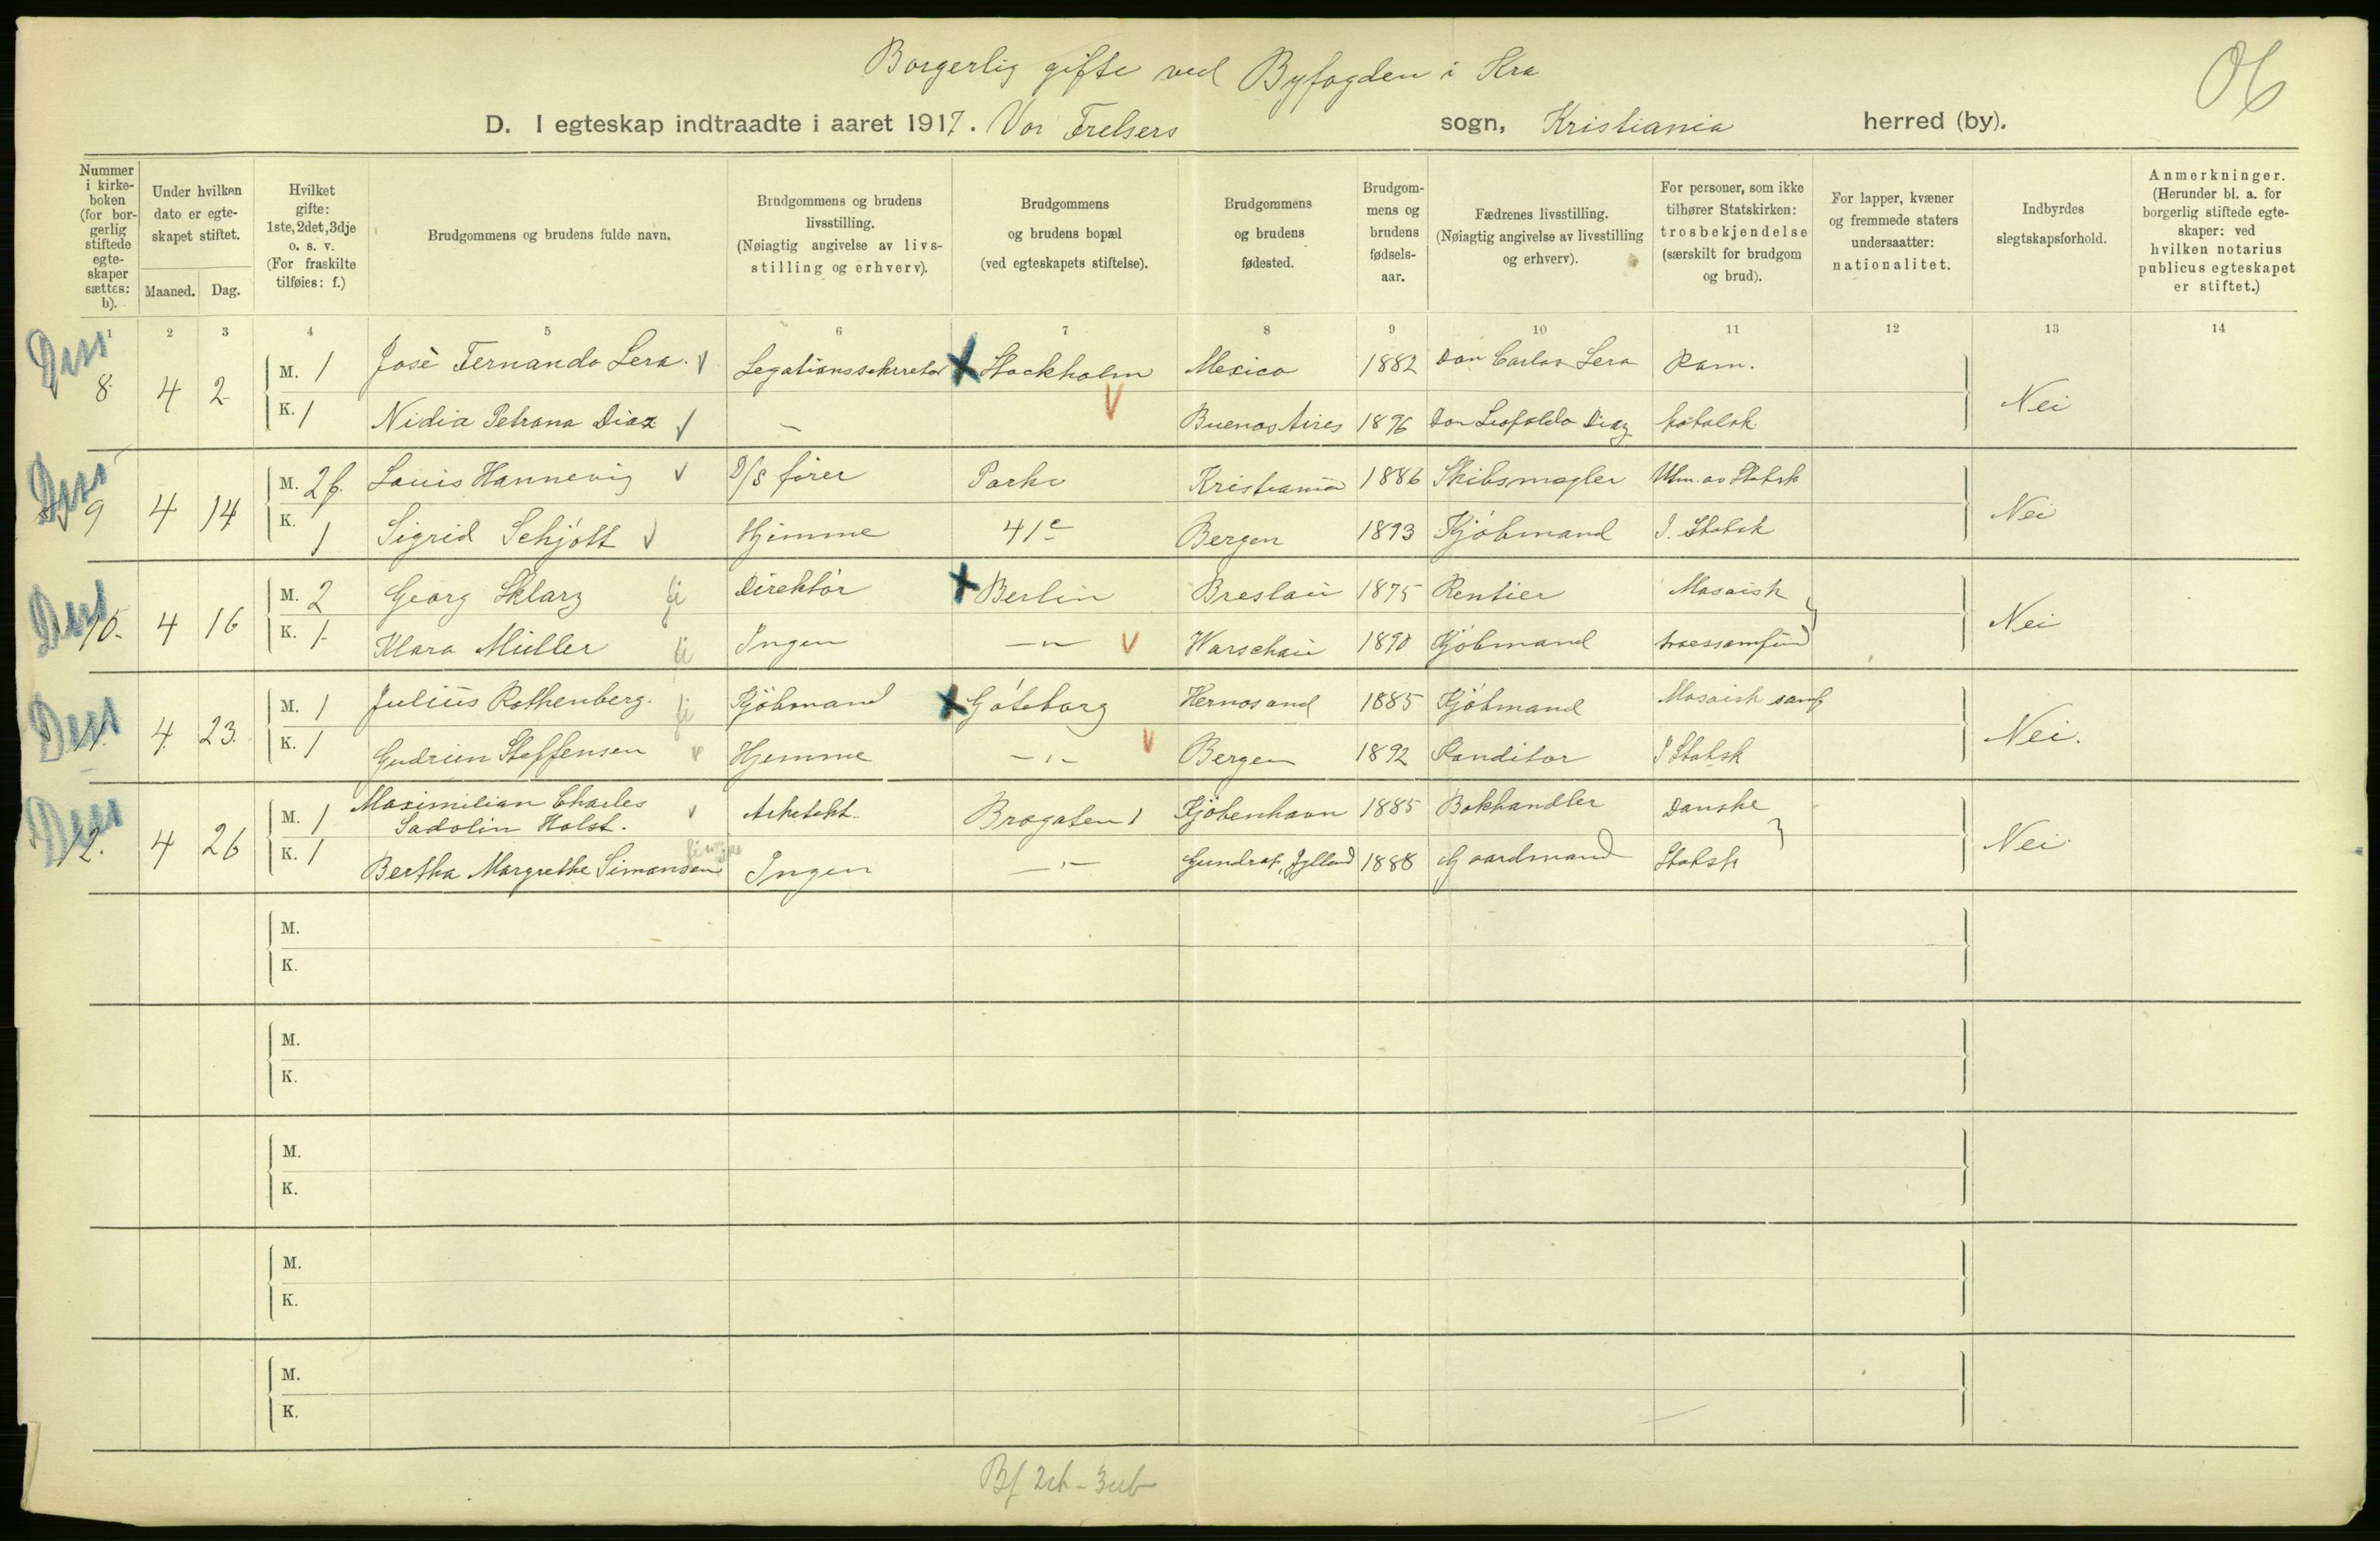 Borgerlig gifte ved Byfogden i Kra
06
D. I egteskap indtraadte i aaret 1917. Vor Frelsers sogn, Kristiania herred (by).
Nummer i kirke-boken (for bor-gerlig stiftede egte-skaper sættes: b).
Under hvilken dato er egte-skapet stiftet.
Maaned. Dag.
Hvilket gifte: 1ste, 2det, 3dje o. s. v. (For fraskilte tilføies: f.)
Brudgommens og brudens fulde navn.
Brudgommens og brudens livsstilling. (Nøiagtig angivelse av livs-stilling og erhverv).
Brudgommens og brudens bopæl (ved egteskapets stiftelse).
Brudgommens og brudens fødested.
Brudgom-mens og brudens fødsels-aar.
Fædrenes livsstilling. (Nøiagtig angivelse av livsstilling og erhverv).
For personer, som ikke tilhører Statskirken: trosbekjendelse (særskilt for brudgom og brud).
For lapper, kvæner og fremmede staters undersaatter: nationalitet.
Indbyrdes slegtskapsforhold.
Anmerkninger. (Herunder bl. a. for borgerlig stiftede egte-skaper: ved hvilken notarius publicus egteskapet er stiftet.)
1 2 3 4 5 6 7 8 9 10 11 12 13 14
8 4 2 M. 1 Josè Fernando Lera Legationssekretær Stockholm Mexico 1882 Don Carlos Lera Rom. Nei
K. 1 Nidia Petrona Diaz — Buenos Aires 1896 Don Leopoldo Diaz katolsk
9 4 14 M. 2 f. Louis Hannevig D/S fører Parkv Kristiania 1886 Skibsmægler Utm. av Statsk Nei
K. 1 Sigrid Schjött Hjemme 41 c Bergen 1893 Kjöbmand I. Statsk
10. 4 16 M. 2 Georg Sklarz Direktör Berlin Breslau 1875 Rentier Mosaisk Nei
K. 1. Klara Müller Ingen —"— Warschau 1890 Kjöbmand troessamfun
11. 4. 23. M. 1 Julius Rothenberg. Kjöbmand Göteborg Hernosand 1885 Kjöbmand Mosaisk samf Nei.
K. 1 Gudrun Steffensen Hjemme —"— Bergen 1892 Konditor I Statsk
12. 4 26 M. 1 Maximilian Charles Sadolin Holst. Arkitekt. Brogaten 1 Kjöbenhavn 1885 Bokhandler Danske Nei
K. 1 Bertha Margrethe Simonsen Ingen —"— Jylland 1888 Gaardmand Statsk
M.
K.
M.
K.
M.
K.
M.
K.
M.
K.